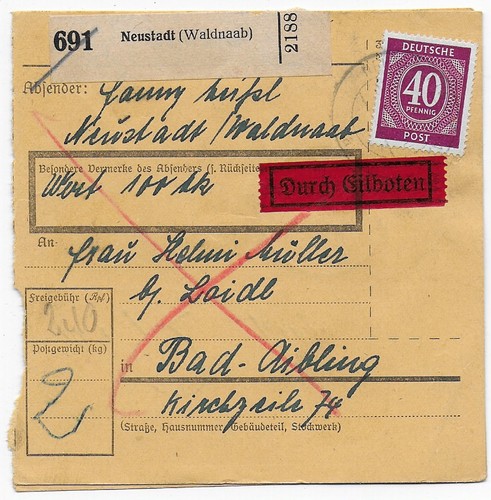 691 Neustadt (Waldnaab) 2188
DEUTSCHE
40
PFENNIG
POST
Absender: Fanny
Neustadt/Waldnaab
Besondere Vermerke des Absenders (s. Rückseite
Wert 100 Mk
Durch Eilboten
An
Frau Helmi Müller
bʒ. Loidl
Freigebühr (Rpf)
2.10
Postgewicht (kg)
2
in Bad-Aibling
Kirchzeile 74
(Straße, Hausnummer, Gebäudeteil, Stockwerk)